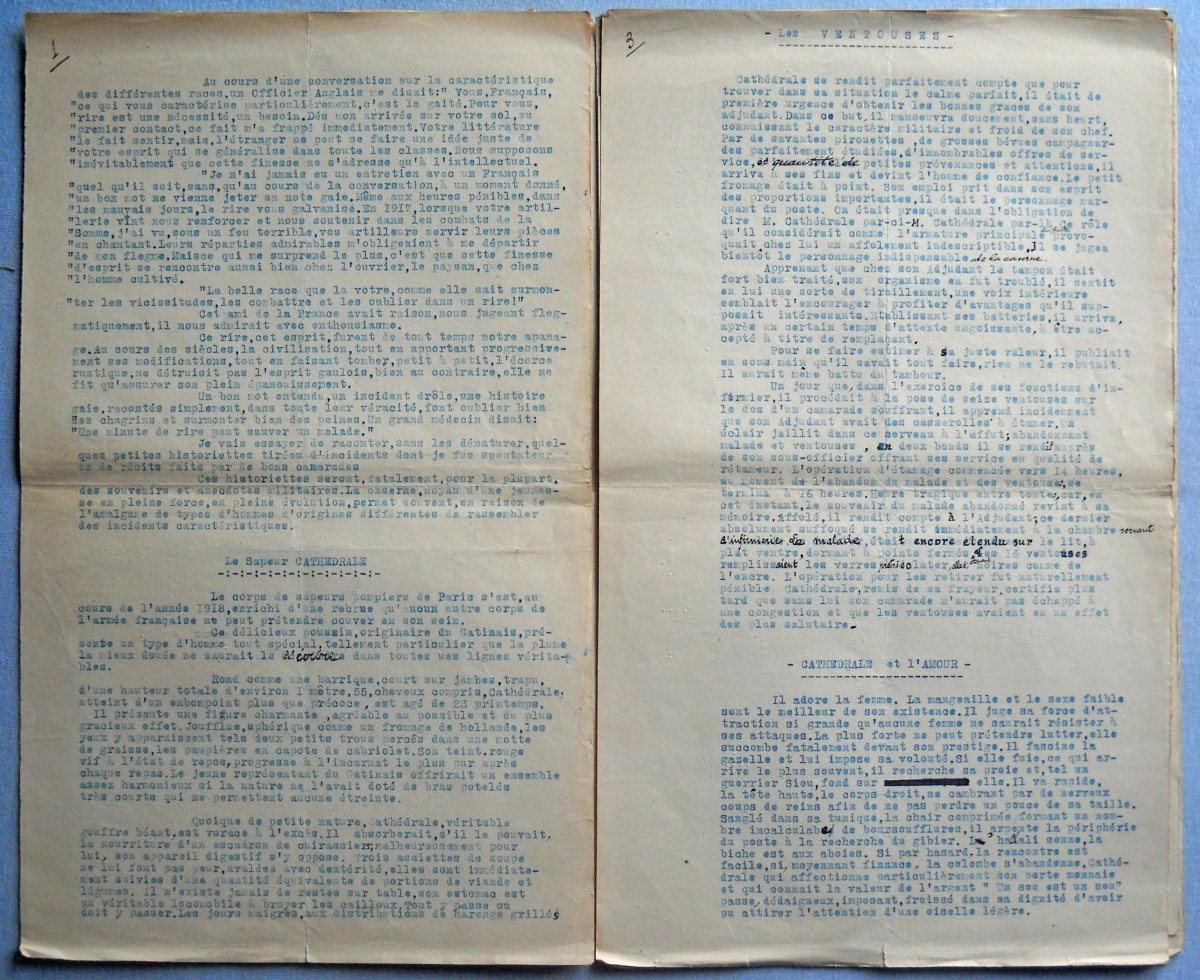 1/
Au cours d'une conversation sur la caractéristique
des différentes races,un Officier Anglais me disait:" Vous,Français,
"ce qui vous caractérise particulièrement,c'est la gaité.Pour vous,
"rire est une nécessité,un besoin.Dés mon arrivée sur votre sol,au
"premier contact,ce fait m'a frappé immediatement.Votre littérature
"le fait sentir,mais,l'étranger ne peut se faire une idée juste de
"votre esprit qui se généralise dans toute les classes.Nous supposons
"inévitablement que cette finesse ne s'adresse qu'à l'intellectuel.
"Je n'ai jamais eu un entretien avec un Français
"quel qu'il soit,sans,qu'au cours de la conversation,à un moment donné,
"un bon mot ne vienne jeter sa note gaie.Même aux heures pénibles,dans
"les mauvais jours,le rire vous galvanise.En 1917,lorsque votre artil-
"lerie vint nous renforcer et nous soutenir dans les combats de la
"Somme,j'ai vu,sous un feu terrible,vos artilleurs servir leurs pièces
"en chantant.Leurs réparties admirables m'obligeaient à me départir
"de mon flegme.Maisce qui me surprend le plus,c'est que cette finesse
"d'esprit se rencontre aussi bien chez l'ouvrier,le paysan,que chez
"l'homme cultivé.
"La belle race que la votre,comme elle sait surmon-
"ter les vicissitudes,les combattre et les oublier dans un rire!"
Cet ami de la France avait raison,nous jugeant fleg-
matiquement,il nous admirait avec enthousiasme.
Ce rire,cet esprit,furent de tout temps notre apana-
ge.Au cours des siècles,la civilisation,tout en apportant progressive-
ment ses modifications,tout en faisant tomber,petit à petit,l'écorce
rustique,ne détruisit pas l'esprit gaulois,bien au contraire,elle ne
fit qu'assurer son plein épanouissement.
Un bon mot entendu,un incident drôle,une histoire
gaie,racontés simplement,dans toute leur véracité,font oublier bien
des chagrins et surmonter bien des peines.Un grand médecin disait:
"Une minute de rire peut sauver un malade."
Je vais essayer de raconter,sans les dénaturer,quel-
ques petites historiettes tirées d'incidents dont je fus spectateur
ou de récits faits par de bons camarades
Ces historiettes seront,fatalement,pour la plupart,
des souvenirs et anecdotes militaires.La caserne,noyau d'une jeunes-
se en pleine force,en pleine évolution,permet souvent,en raison de
l'amalgame de types d'hommes d'origines différentes de rassembler
des incidents caractéristiques.
Le Sapeur CATHEDRALE
-:-:-:-:-:-:-:-:-:-:-
Le corps de sapeurs pompiers de Paris s'est,au
cours de l'année 1918,enrichi d'une recrue qu'aucun autre corps de
l'armée française ne peut prétendre couver en son sein.
Ce délicieux poussin,originaire du Gatinais,pré-
sente un type d'homme tout spécial,tellement particulier que la plume
la mieux douée ne saurait le décrire dans toutes ses lignes vérita-
bles.
Rond comme une barrique,court sur jambes,trapu,
d'une hauteur totale d'environ I mètre,55,cheveux compris,Cathédrale,
atteint d'un embonpoint plus que précoce, est agé de 23 printemps.
Il présente une figure charmante ,agréable au possible et du plus
gracieux effet.Joufflue,sphérique comme un fromage de hollande,les
yeux y apparaissent tels deux petits trous percés dans une motte
de graisse,les paupières en capote de cabriolet.Son teint,rouge
vif à l'état de repos,progresse à l'incarnat le plus pur après
chaque repas.Le jeune représentant du Gatinais offrirait un ensemble
assez harmonieux si la nature ne l'avait doté de bras potelés
très courts qui ne permettent aucune étreinte.
Quoique de petite nature,Cathédrale,véritable
gouffre béant,est vorace à l'excès.Il absorberait,s'il le pouvait,
la nourriture d'un escadron de cuirassiers,malheureusement pour
lui, son appareil digestif s'y oppose. Trois assiettes de soupe
ne lui font pas peur,avalées avec dextérité,elles sont immédiate-
ment suivies d'une quantité équivalente de portions de viande et
légumes. Il n'existe jamais de restes sur table,son estomac est
un véritable locomobile à broyer les cailloux.Tout y passe ou
doit y passer.Les jours maigres,aux distributions de harengs grillés
3/
- Les VENTOUSES -
Cathédrale se rendit parfaitement compte que pour
trouver dans sa situation le calme parfait,il était de
première urgence d'obtenir les bonnes graces de son
adjudant.Dans ce but,il manoeuvra doucement,sans heurt,
connaissant le caractère militaire et froid de son chef.
Par de savantes pirouettes ,de grosses bévues campagnar-
des parfaitement étudiées,d'innombrables offres de ser-
vice, et quantité de petites prévenances et attentions,il
arriva à ses fins et devint l'homme de confiance.Le petit
fromage était à point. Son emploi prit dans son esprit
des proportions importantes,il était le personnage mar-
quant du poste. On était presque dans l'obligation de
dire M. Cathédrale par-ci-M. Cathédrale par-là,le rôle
qu'il considérait comme l'armature principale provo-
quait chez lui un affolement indescriptible,Il se jugea
bientôt le personnage indispensable de la caserne.
Apprenant que chez son Adjudant le tampon était
fort bien traité,son organisme en fut troublé,il sentit
en lui une sorte de tiraillement,une voix intérieure
semblait l'encourager à profiter d'avantages qu'il sup-
posait intéressants.Etablissant ses batteries,il arriva,
après un certain temps d'attente angoissante,à être ac-
cepté à titre de remplaçant.
Pour se faire estimer à sa juste valeur,il publiait
en sous main qu'il savait tout faire,rien ne le rebutait.
Il aurait même battu du tambour.
Un jour que,dans l'exercice de ses fonctions d'in-
firmier,il procédait à la pose de seize ventouses sur
le dos d'un camarade souffrant,il apprend incidemment
que son Adjudant avait des casserolles à étamer.Un
éclair jaillit dans ce cerveau à l'affut;abandonnant
malade et ventouses , en deux bonds il se rendit après
de son sous-officier offrant ses service en qualité de
rétameur. L'opération d'étamage commencée vers 14 heures,
au moment de l'abandon du malade et des ventouses,se
termina à 16 heures.Heure tragique entre toutes,car,en
cet instant,le souvenir du malade abandonné revint à sa
mémoire.Affolé,il rendit compte à l'Adjudant;ce dernier
absolument suffoqué se rendit immédiatement à la chambre servant
d'infirmerie Le malade,était encore étendu sur le lit,à
plat ventre,dormant à points fermés, les 16 ventouses
remplissaient les verres éclater, noires comme de
l'encre. L'opération pour les retirer fut naturellement
pénible. Cathédrale,remis de sa frayeur,certifia plus
tard que sans lui son camarade n'aurait pas échappé à
une congestion et que les ventouses avaient eu un effet
des plus salutaire.
- CATHEDRALE et l'AMOUR -
Il adore la femme. La mangeaille et le sexe faible
sont le meilleur de son existence.Il juge sa force d'at-
traction si grande qu'aucune femme ne saurait résister à
ses attaques.La plus forte ne peut prétendre lutter,elle
succombe fatalement devant son prestige.Il fascine la
gazelle et lui impose sa volonté.Si elle fuie,ce qui ar-
rive le plus souvent,il recherche sa proie et,tel un
guerrier Siou,fond sur elle.Il va rapide,
la tête haute,le corps droit,se cambrant par de nerveux
coups de reins afin de ne pas perdre un pouce de sa taille.
Sanglé dans sa tunique,la chair comprimée formant un nom-
bre incalculable de boursoufflures,il arpente la périphérie
du poste à la recherche du gibier. L' halali sonne,la
biche est aux abois. Si par hasard,la rencontre est
facile,si,moyennant finance, la colombe s'abandonne,Cathé-
drale qui affectionne particulièrement son porte monnaie
et qui connait la valeur de l'argent " Un sou est un sou"
passe,dédaigneux,imposant,froissé dans sa dignité d'avoir
pu attirer l'attention d'une oiselle légère.